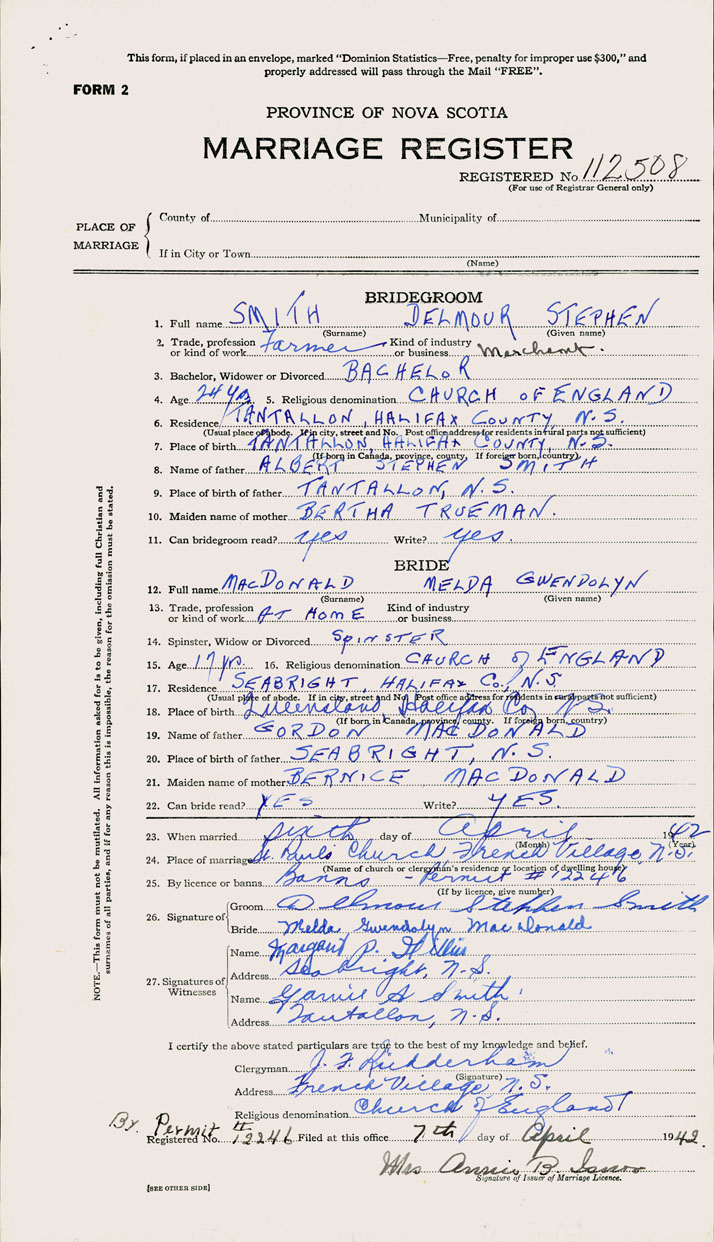 This form, if placed in an envelope, marked "Dominion Statistics—Free, penalty for improper use $300," and
properly addressed will pass through the Mail "FREE".
FORM 2
PROVINCE OF NOVA SCOTIA
MARRIAGE REGISTER
REGISTERED No. 112508
(For use of Registrar General only)
PLACE OF MARRIAGE
County of Municipality of
If in City or Town
(Name)
BRIDEGROOM
1. Full name SMITH DELMOUR STEPHEN
(Surname) (Given name)
2. Trade, profession or kind of work Farmer Kind of industry or business Merchant.
3. Bachelor, Widower or Divorced BACHELOR
4. Age 24 yrs 5. Religious denomination CHURCH OF ENGLAND
6. Residence TANTALLON, HALIFAX COUNTY, N.S.
(Usual place of abode. If in city, street and No. Post office address for residents in rural parts not sufficient)
7. Place of birth TANTALLON, HALIFAX COUNTY, N.S.
(If born in Canada, province, county. If foreign born, country)
8. Name of father ALBERT STEPHEN SMITH
9. Place of birth of father TANTALLON, N.S.
10. Maiden name of mother BERTHA TRUEMAN.
11. Can bridegroom read? yes Write? yes.
BRIDE
12. Full name MACDONALD MELDA GWENDOLYN
(Surname) (Given name)
13. Trade, profession or kind of work AT HOME Kind of industry or business
14. Spinster, Widow or Divorced SPINSTER
15. Age 17 yrs. 16. Religious denomination CHURCH of ENGLAND
17. Residence SEABRIGHT, HALIFAX CO., N.S
(Usual place of abode. If in city, street and No. Post office address for residents in rural parts not sufficient)
18. Place of birth Queensland, Halifax Co, N.S.
(If born in Canada, province, county. If foreign born, country)
19. Name of father GORDON MACDONALD
20. Place of birth of father SEABRIGHT, N.S.
21. Maiden name of mother BERNICE MACDONALD
22. Can bride read? YES Write? YES.
23. When married sixth day of April 1942
(Month) (Year)
24. Place of marriage St. Paul's Church French Village, N.S.
(Name of church or clergyman's residence or location of dwelling house)
25. By licence or banns Banns - Permit # 12246
(If by licence, give number)
26. Signature of
Groom Delmour Stephen Smith
Bride Melda, Gwendolyn MacDonald
27. Signatures of Witnesses
Name Margaret P.
Address Seabright, N.S.
Name Garvie A Smith
Address Tantallon, N.S.
I certify the above stated particulars are true to the best of my knowledge and belief.
Clergyman J. F. Rudderham
(Signature)
Address French Village, N.S.
Religious denomination Church of England
By Permit #
Registered No. 12246 Filed at this office 7th day of April 1942.
Mrs Annie B.
Signature of Issuer of Marriage Licence.
[SEE OTHER SIDE]
NOTE.—This form must not be mutilated. All information asked for is to be given, including full Christian and
surnames of all parties, and if for any reason this is impossible, the reason for the omission must be stated.